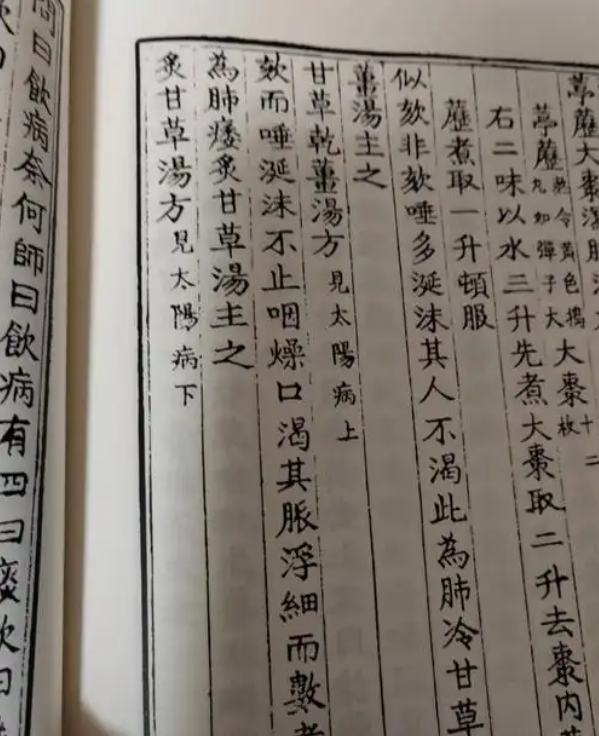 葶藶大棗瀉肺湯方
葶藶熬令黃色搗丸如彈子大大棗十二枚
右二味以水三升先煮大棗取二升去棗內葶
藶煮取一升頓服
似欬非欬唾多涎沫其人不渴此為肺冷甘草
薑湯主之
甘草乾薑湯方見太陽病上
欬而唾涎沫不止咽燥口渴其脈浮細而數者
為肺痿炙甘草湯主之
炙甘草湯方見太陽病下
問曰飲病奈何師曰飲病有四曰痰飲曰